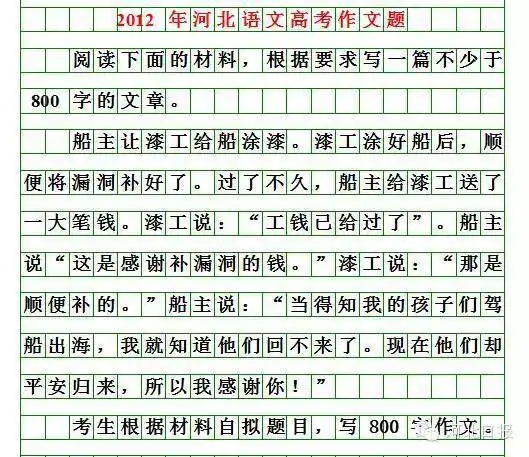 2012 年河北语文高考作文题
阅读下面的材料，根据要求写一篇不少于
800 字的文章。
船主让漆工给船涂漆。漆工涂好船后，顺
便将漏洞补好了。过了不久，船主给漆工送了
一大笔钱。漆工说：“工钱已给过了”。船主
说“这是感谢补漏洞的钱。”漆工说：“那是
顺便补的。”船主说：“当得知我的孩子们驾
船出海，我就知道他们回不来了。现在他们却
平安归来，所以我感谢你！”
考生根据材料自拟题目，写 800 字作文。
河北日报